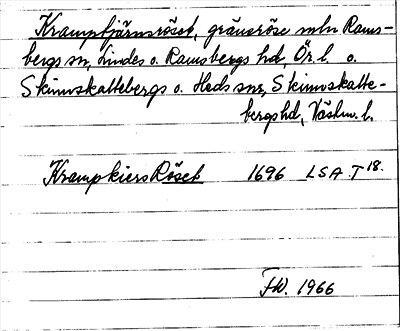 Krampfjärnsröset, gränsröse mln Rams-
bergs sn, Lindes o. Ramsbergs hd, Ör. l. o.
Skinnskattebergs o. Heds snr, Skinnskatte-
bergs hd, Västm. l.
Krampkiers Röset 1696 LSA T 18.
FW. 1966